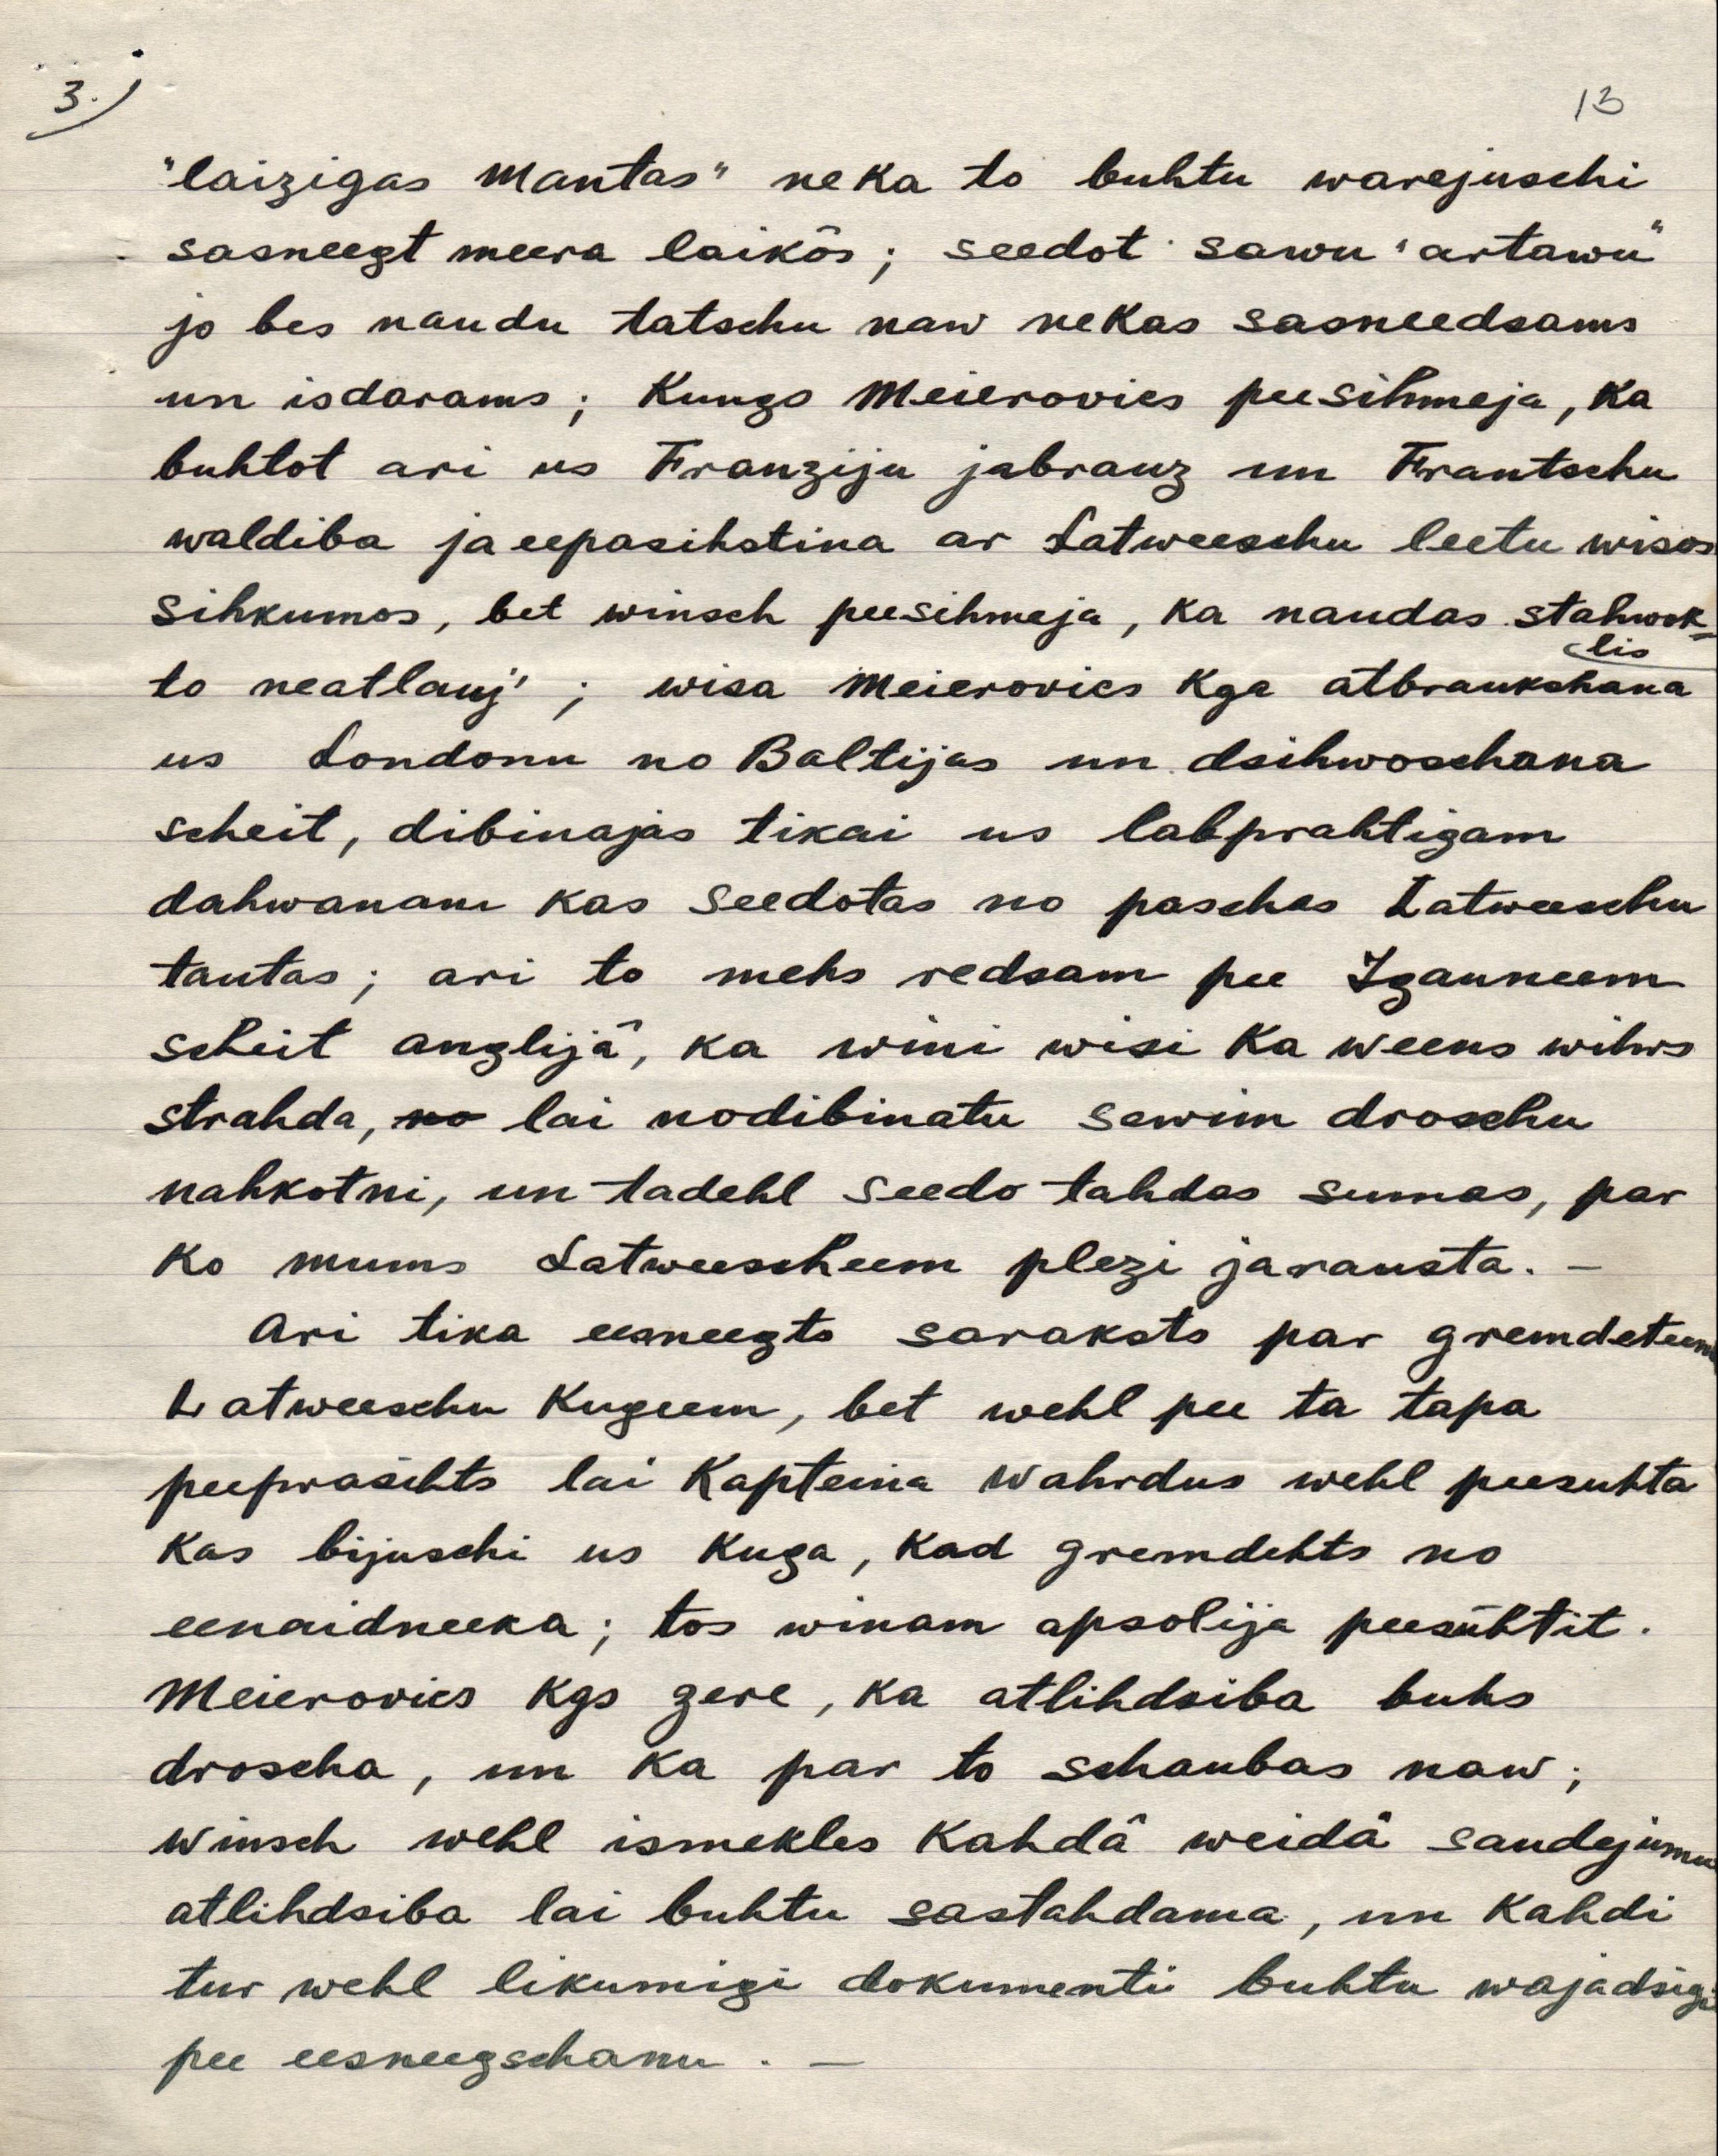 3.)
13
"laizigas Mantas" neka to buhtu warejuschi
sasneegt meera laikôs; seedot sawu "artawu"
jo bes naudu tatschu naw nekas sasneedsams
un isdarams; Kungs Meierovics peesihmeja, ka
buhtot ari us Franziju jabrauz un Frantschu
waldiba jaeepasihstina ar Latweeschu leetu wisos
sihkumos, bet winsch peesihmeja, ka naudas stahwok-
lis
to neatlauj'; wisa Meierovics Kga atbraukshana
us Londonu no Baltijas un dsihwoschana
scheit, dibinajas tikai us labprahtigam
dahwanam kas seedotas no paschas Latweeschu
tautas; ari to mehs redsam pee Igauneem
scheit anglijâ, ka wini wisi ka weens wihrs
strahda, no lai nodibinatu sewim droschu
nahkotni, un tadehl seedo tahdas sumas, par
ko mums Latweescheem plezi jarausta. –
Ari tika eesneegts saraksts par gremdeteem
Latweeschu Kugeem, bet wehl pee ta tapa
peeprasihts lai Kapteina Wahrdus wehl peesuhta
kas bijuschi us Kuga, kad gremdehts no
eenaidneeka; tos winam apsolija peesuhtit.
Meierovics Kgs zere, ka atlihdsiba buhs
droscha, un ka par to schaubas naw;
winsch wehl ismekles kahdâ weidâ saudejumu
atlihdsiba lai buhtu sastahdama, un kahdi
tur wehl likumigi dokumenti buhtu wajadsigi
pee eesneegschanu. –